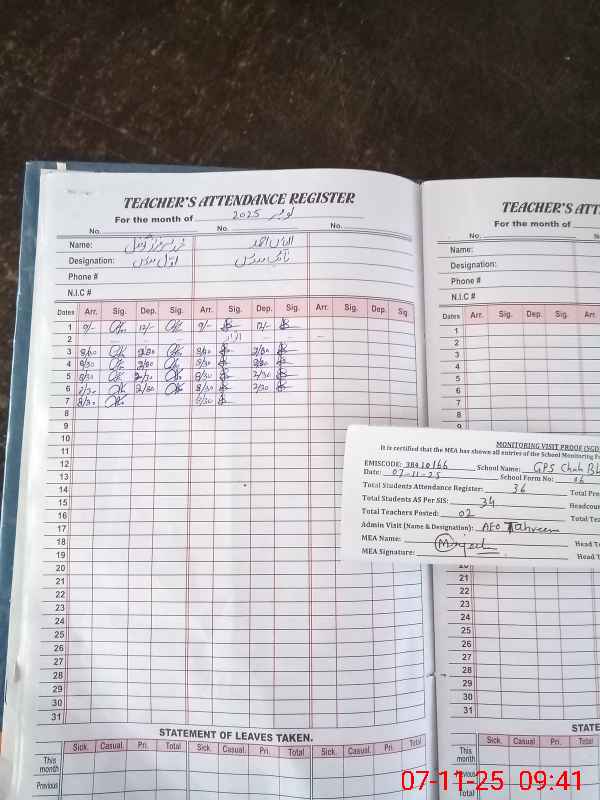 TEACHER'S ATTENDANCE REGISTER
For the month of نومبر 2025
No. No. No.
Name: الیاس احمد
Designation: اول مدرس نائب مدرس
Phone #
N.I.C #
Dates Arr. Sig. Dep. Sig. Arr. Sig. Dep. Sig. Arr. Sig. Dep. Sig.
1 9/- 12/- 9/- 12/-
2 اتوار
3 8/30 2/30 8/30 2/30
4 8/30 2/30 8/30 2/30
5 8/30 2/30 8/30 2/30
6 8/30 2/30 8/30 2/30
7 8/30 8/30
8
9
10
11
12
13
14
15
16
17
18
19
20
21
22
23
24
25
26
27
28
29
30
31
STATEMENT OF LEAVES TAKEN.
Sick. Casual. Pri. Total Sick. Casual. Pri. Total Sick. Casual. Pri. Total
This month
Previous
TEACHER'S ATT
For the month of
No. N
Name:
Designation:
Phone #
N.I.C #
Dates Arr. Sig. Dep. Sig. Arr.
1
2
3
4
5
6
7
8
MONITORING VISIT PROOF (SGD
It is certified that the MEA has shown all entries of the School Monitoring Fo
EMISCODE: 38410166 School Name: GPS Chah Bh
Date: 07-11-25 School Form No: 06
Total Students Attendance Register: 36 Total Pre
Total Students AS Per SIS: 34 Headcoun
Total Teachers Posted: 02 Total Tea
Admin Visit (Name & Designation): AEO Tahreem
MEA Name: Head T
MEA Signature: Head T
20
21
22
23
24
25
26
27
28
29
30
31
STATE
Sick. Casual. Pri. Total Sick.
This month
Previous
07-11-25 09:41